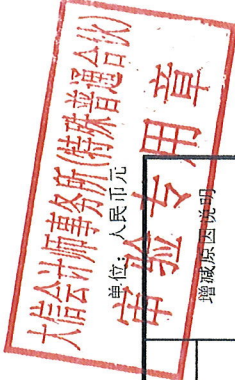 大信会计师事务所(特殊普通合伙)
审验专用章
单位：人民币元
增减原因说明